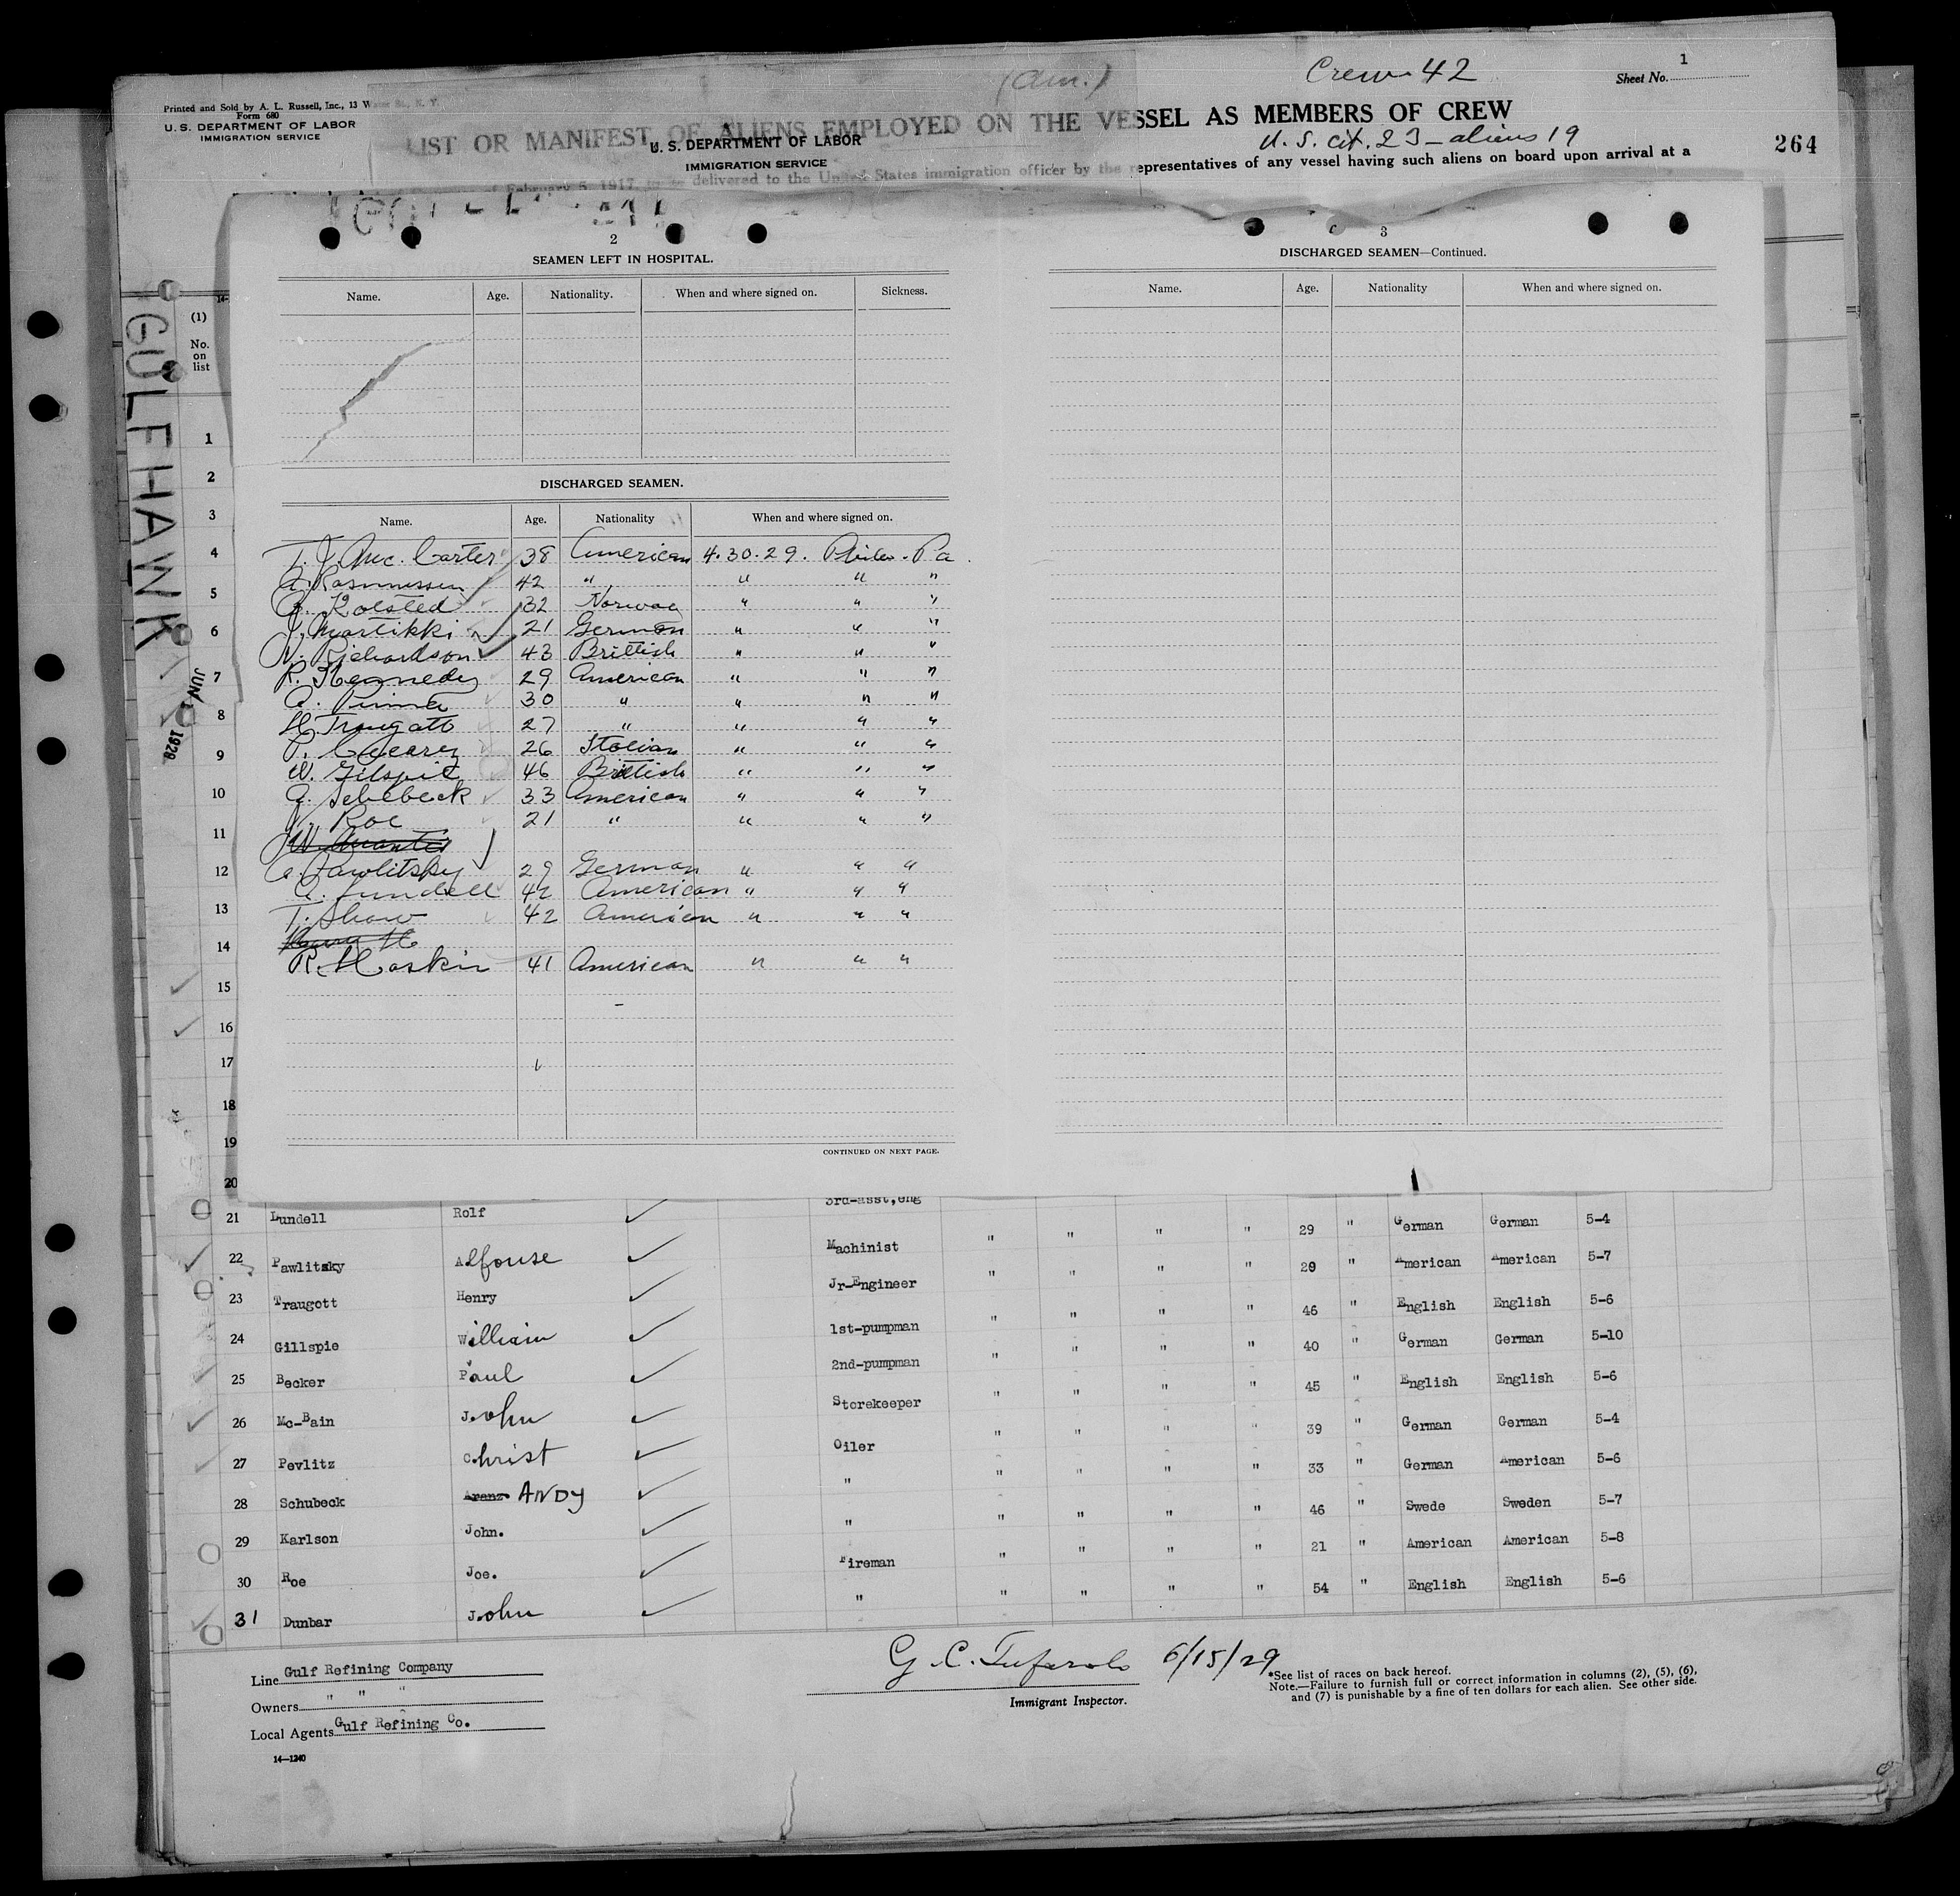 (Am.)
Crew 42
Sheet No. 1
Printed and Sold by A. L. Russell, Inc., 13 Water St., N. Y.
Form 680
U. S. DEPARTMENT OF LABOR
IMMIGRATION SERVICE
LIST OR MANIFEST OF ALIENS EMPLOYED ON THE VESSEL AS MEMBERS OF CREW
U. S. DEPARTMENT OF LABOR
IMMIGRATION SERVICE
U. S. cit. 23 - aliens 19
264
of February 5, 1917, delivered to the United States immigration officer by the representatives of any vessel having such aliens on board upon arrival at a
GULFHAWK
JUN 1929
(1)
No. on list
2
SEAMEN LEFT IN HOSPITAL.
Name. Age. Nationality. When and where signed on. Sickness.
DISCHARGED SEAMEN.
Name. Age. Nationality When and where signed on.
T. J. Mc. Carter 38 American 4.30.29. Phila. Pa
Rasmussen 42 " " " "
Kolsted 32 Norway " " "
J. Martikki 21 German " " "
Richardson 43 Brittish " " "
R. Kennedy 29 American " " "
30 " " " "
H. Traugott 27 " " " "
26 Italian " " "
W. Gilspie 46 British " " "
A. Schebeck 33 American " " "
J. Roe 21 " " " "
A. Pawlitsky 29 German " " "
Lundell 42 American " " "
T. Shaw 42 American " " "
R. Haskin 41 American " " "
CONTINUED ON NEXT PAGE.
3
DISCHARGED SEAMEN—Continued.
Name. Age. Nationality When and where signed on.
1
2
3
4
5
6
7
8
9
10
11
12
13
14
15
16
17
18
19
20
3rd-asst,eng
21 Lundell Rolf Machinist " " " " 29 " German German 5-4
22 Pawlitsky Alfonse Jr-Engineer " " " " 29 " American American 5-7
23 Traugott Henry 1st-pumpman " " " " 46 " English English 5-6
24 Gillspie William 2nd-pumpman " " " " 40 " German German 5-10
25 Becker Paul Storekeeper " " " " 45 " English English 5-6
26 Mc-Bain John Oiler " " " " 39 " German German 5-4
27 Pevlitz Christ " " " " " 33 " German American 5-6
28 Schubeck ANDY " " " " " 46 " Swede Sweden 5-7
29 Karlson John. Fireman " " " " 21 " American American 5-8
30 Roe Joe. " " " " " 54 " English English 5-6
31 Dunbar John
Line Gulf Refining Company
Owners " " "
Local Agents Gulf Refining Co.
14—1240
6/15/29
Immigrant Inspector.
*See list of races on back hereof.
Note.—Failure to furnish full or correct information in columns (2), (5), (6),
and (7) is punishable by a fine of ten dollars for each alien. See other side.